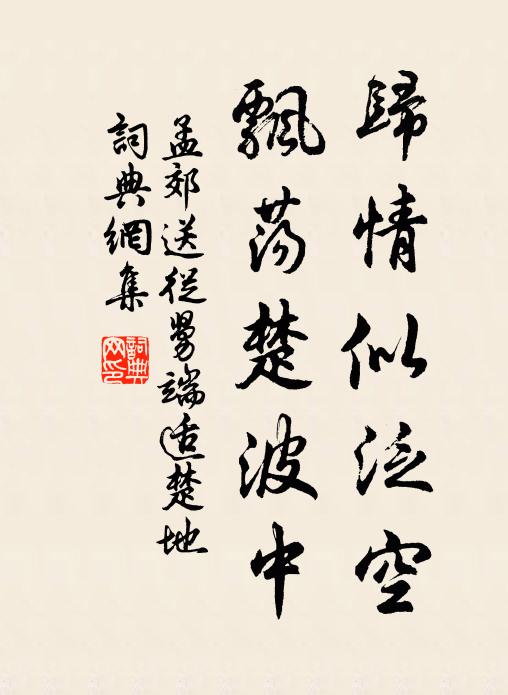 歸情似泛空
飄蕩楚波中
孟郊送從舅端適楚地
詞典網集
詞典網印